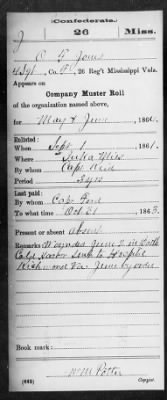 Confederate.
J 26 Miss.
4 Sgt, Co. 26 Reg't Mississippi Vols.
Appears on
Company Muster Roll
of the organization named above,
for May & June, 1864.
Enlisted:
When Sept 1, 1861.
Where Iuka Miss
By whom Capt Reid
Period 3 yrs
Last paid:
By whom Capt Ford
To what time Oct 31, 1863.
Present or absent Absent
Remarks Wounded June 2 in Battle
Cold Harbor Sent to Hospital
Richmond Va June by order
Book mark:
Wm Potter
(642) Copyist.